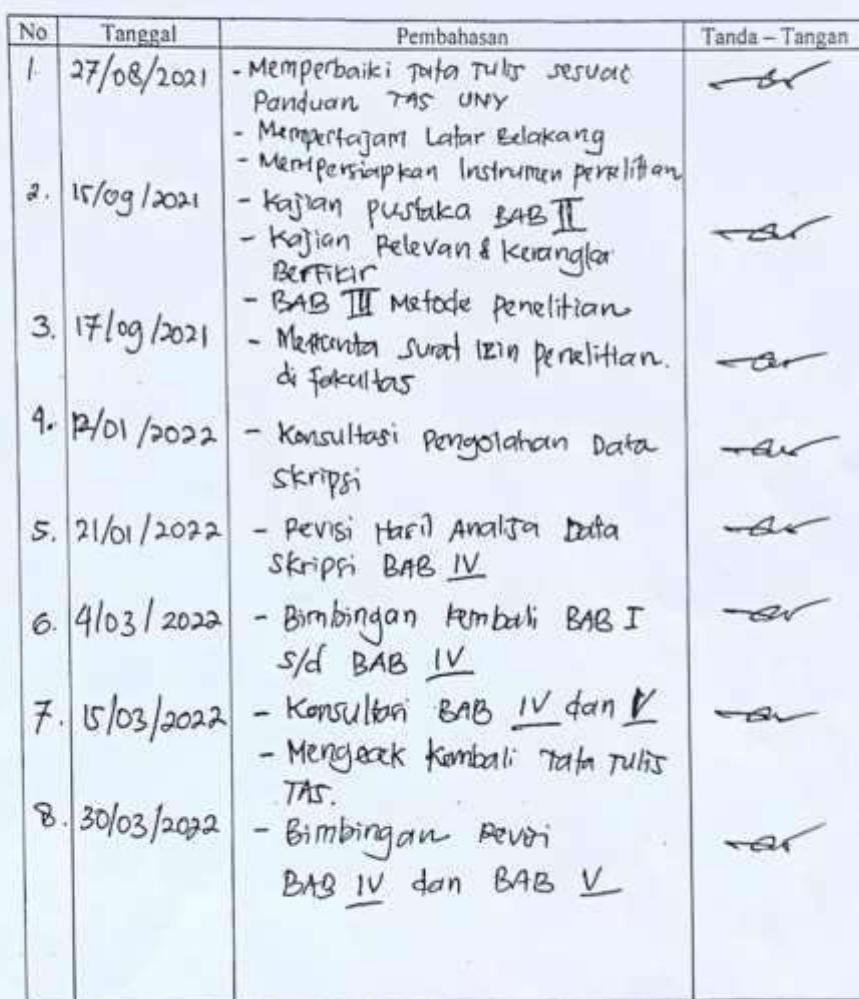 No Tanggal Pembahasan Tanda – Tangan
1. 27/08/2021 - Memperbaiki Tata Tulis sesuai
Panduan TAS UNY
- Mempertajam Latar Belakang
- Mempersiapkan Instrumen penelitian
2. 15/09/2021 - Kajian pustaka BAB II
- Kajian Relevan & Kerangka
Berfikir
- BAB III Metode Penelitian
3. 17/09/2021 - Meminta surat izin penelitian.
di Fakultas
4. 12/01/2022 - Konsultasi Pengolahan Data
Skripsi
5. 21/01/2022 - Revisi Hasil Analisa Data
Skripsi BAB IV
6. 4/03/2022 - Bimbingan kembali BAB I
s/d BAB IV
7. 15/03/2022 - Konsultasi BAB IV dan V
- Mengecek kembali Tata Tulis
TAS.
8. 30/03/2022 - Bimbingan Revisi
BAB IV dan BAB V